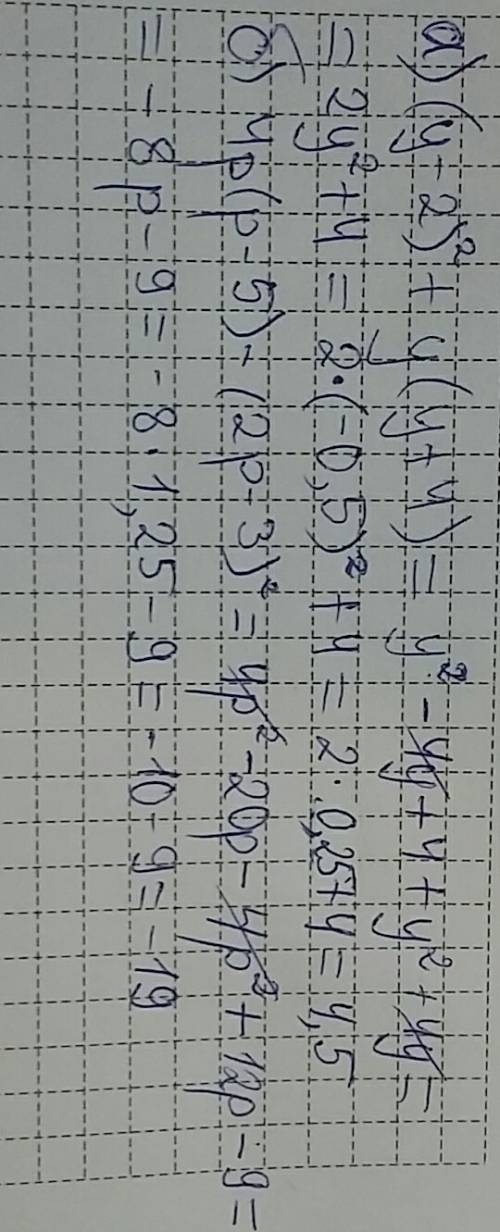 а) (y-2)² + y(y+4) = y² - 4y + 4 + y² + 4y =
= 2y² + 4 = 2·(-0,5)² + 4 = 2·0,25 + 4 = 4,5
б) 4p(p-5) - (2p-3)² = 4p² - 20p - 4p² + 12p - 9 =
= - 8p - 9 = - 8·1,25 - 9 = - 10 - 9 = - 19